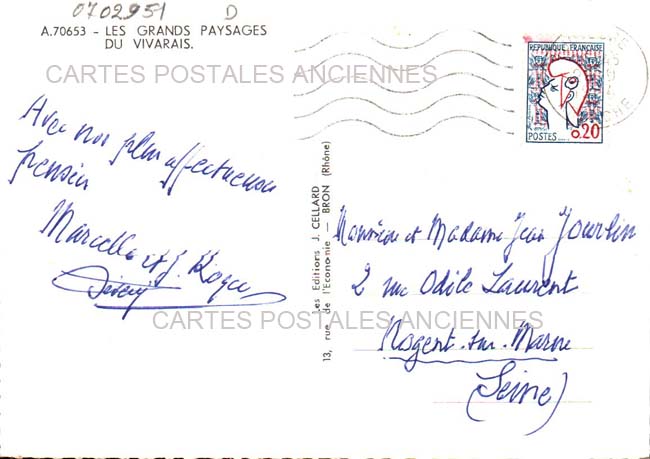 0702951 D
A.70653 - LES GRANDS PAYSAGES
DU VIVARAIS.
CARTES POSTALES ANCIENNES
REPUBLIQUE FRANÇAISE
POSTES
0,20
Avec nos plus affectueuses
pensées
Marcelle et J.
Les Editions J. CELLARD
13, rue de l'Economie - BRON (Rhône)
Monsieur et Madame Jean Jourlin
2 rue Odile Laurent
Nogent-sur-Marne
(Seine)
CARTES POSTALES ANCIENNES